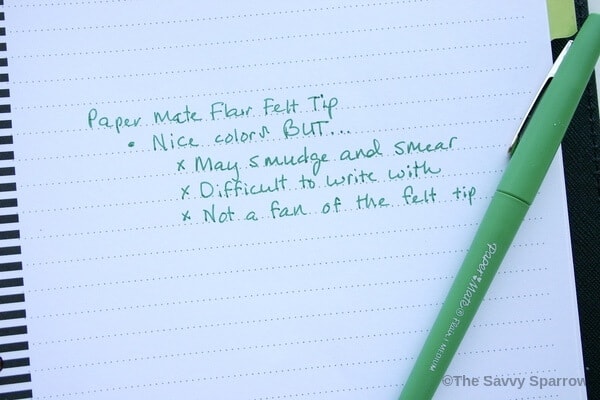 Paper Mate Flair Felt Tip
• Nice colors BUT...
x May smudge and smear
x Difficult to write with
x Not a fan of the felt tip
Paper Mate® Flair M MEDIUM
©The Savvy Sparrow